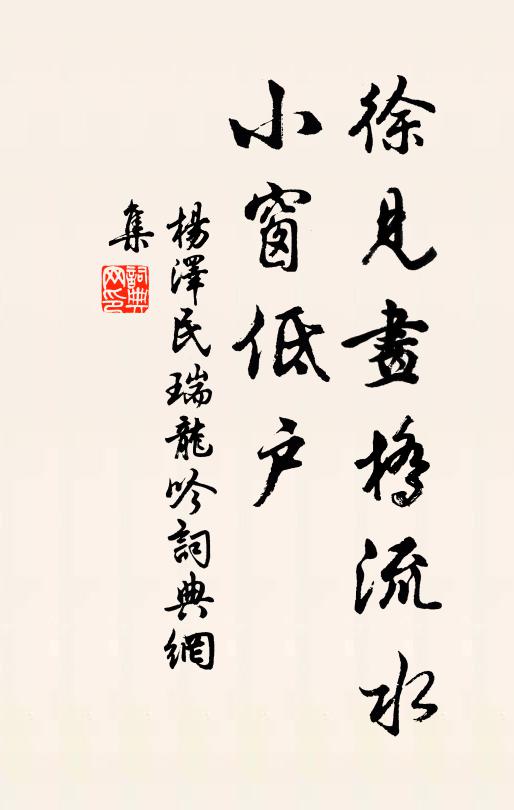 徐見畫橋流水
小窗低户
楊澤民瑞龍吟詞典網
集
詞典网印